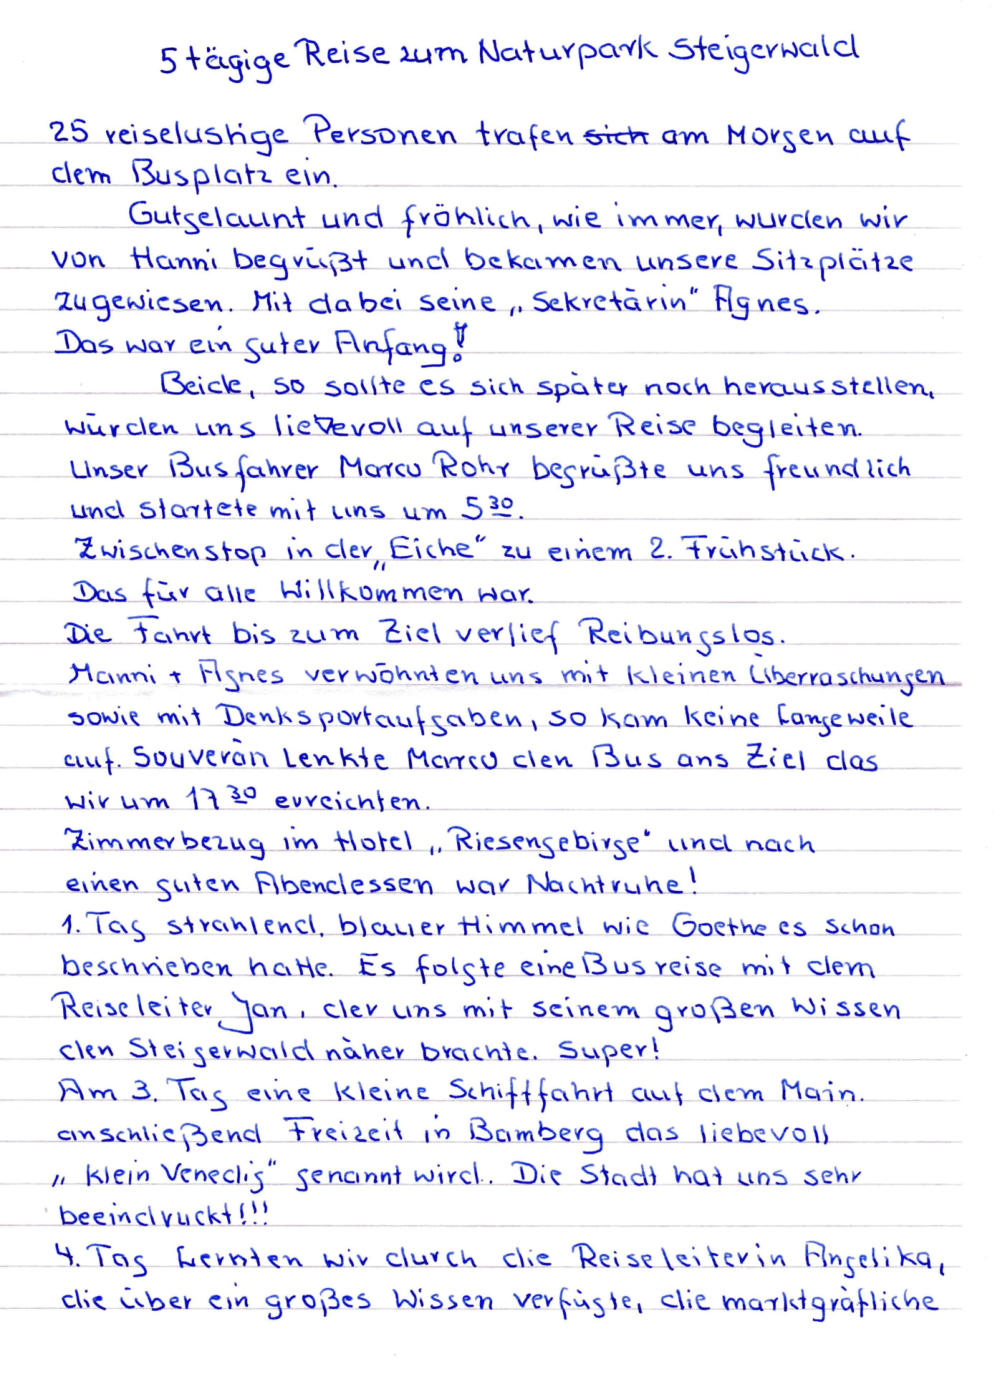 5 tägige Reise zum Naturpark Steigerwald
25 reiselustige Personen trafen sich am Morgen auf
dem Busplatz ein.
Gutgelaunt und fröhlich, wie immer, wurden wir
von Hanni begrüßt und bekamen unsere Sitzplätze
zugewiesen. Mit dabei seine „Sekretärin" Agnes.
Das war ein guter Anfang!
Beide, so sollte es sich später noch herausstellen,
würden uns liebevoll auf unserer Reise begleiten.
Unser Busfahrer Marco Rohr begrüßte uns freundlich
und startete mit uns um 5 30.
Zwischenstop in der „Eiche" zu einem 2. Frühstück.
Das für alle Willkommen war.
Die Fahrt bis zum Ziel verlief Reibungslos.
Hanni + Agnes verwöhnten uns mit kleinen Überraschungen
sowie mit Denksportaufgaben, so kam keine Langeweile
auf. Souverän Lenkte Marco den Bus ans Ziel das
wir um 17 30 erreichten.
Zimmerbezug im Hotel „Riesengebirge" und nach
einen guten Abendessen war Nachtruhe!
1. Tag strahlend, blauer Himmel wie Goethe es schon
beschrieben hatte. Es folgte eine Busreise mit dem
Reiseleiter Jan, der uns mit seinem großen Wissen
den Steigerwald näher brachte. Super!
Am 3. Tag eine kleine Schifffahrt auf dem Main.
anschließend Freizeit in Bamberg das liebevoll
„Klein Venedig" genannt wird. Die Stadt hat uns sehr
beeindruckt!!!
4. Tag Lernten wir durch die Reiseleiterin Angelika,
die über ein großes Wissen verfügte, die marktgräfliche